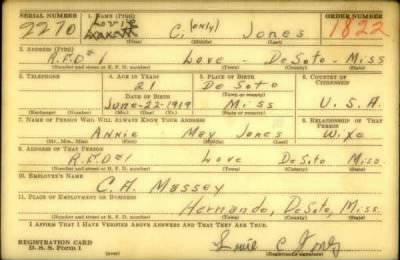 SERIAL NUMBER 1. NAME (Print) ORDER NUMBER
Lovie
2270 C. (only) Jones 1822
(First) (Middle) (Last)
2. ADDRESS (Print)
R.F.D#1 Love - DeSoto - Miss
(Number and street or R. F. D. number) (Town) (County) (State)
3. TELEPHONE 4. AGE IN YEARS 5. PLACE OF BIRTH 6. COUNTRY OF CITIZENSHIP
21 De Soto
DATE OF BIRTH (Town or county)
June-22-1919 Miss U.S.A.
(Exchange) (Number) (Mo.) (Day) (Yr.) (State or country)
7. NAME OF PERSON WHO WILL ALWAYS KNOW YOUR ADDRESS 8. RELATIONSHIP OF THAT PERSON
Annie May Jones Wife
(Mr., Mrs., Miss) (First) (Middle) (Last)
9. ADDRESS OF THAT PERSON
R.F.D#1 Love DeSoto Miss.
(Number and street or R. F. D. number) (Town) (County) (State)
10. EMPLOYER'S NAME
C.A. Massey
11. PLACE OF EMPLOYMENT OR BUSINESS
Hernando, DeSoto, Miss.
(Number and street or R. F. D. number) (Town) (County) (State)
I AFFIRM THAT I HAVE VERIFIED ABOVE ANSWERS AND THAT THEY ARE TRUE.
REGISTRATION CARD
D. S. S. Form 1 (over) (Registrant's signature)